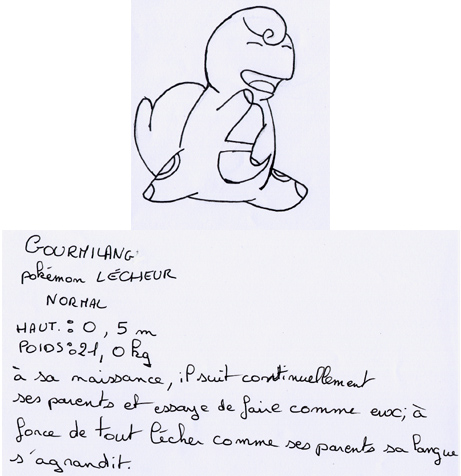 GOURMILANG
pokémon LÉCHEUR
NORMAL
HAUT. : 0,5 m
POIDS : 21,0 kg
à sa naissance, il suit continuellement
ses parents et essaye de faire comme eux ; à
force de tout lécher comme ses parents sa langue
s'agrandit.